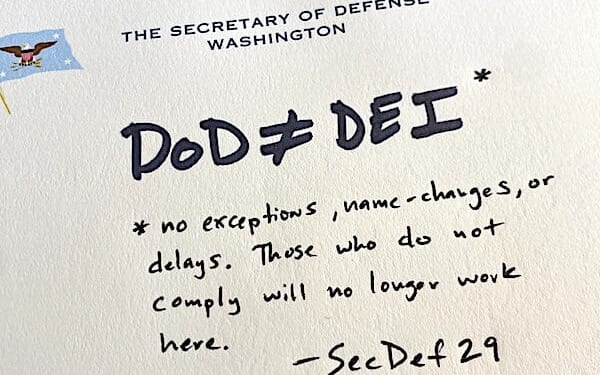 THE SECRETARY OF DEFENSE
WASHINGTON
DoD ≠ DEI *
* no exceptions, name-changes, or
delays. Those who do not
comply will no longer work
here.
—SecDef 29